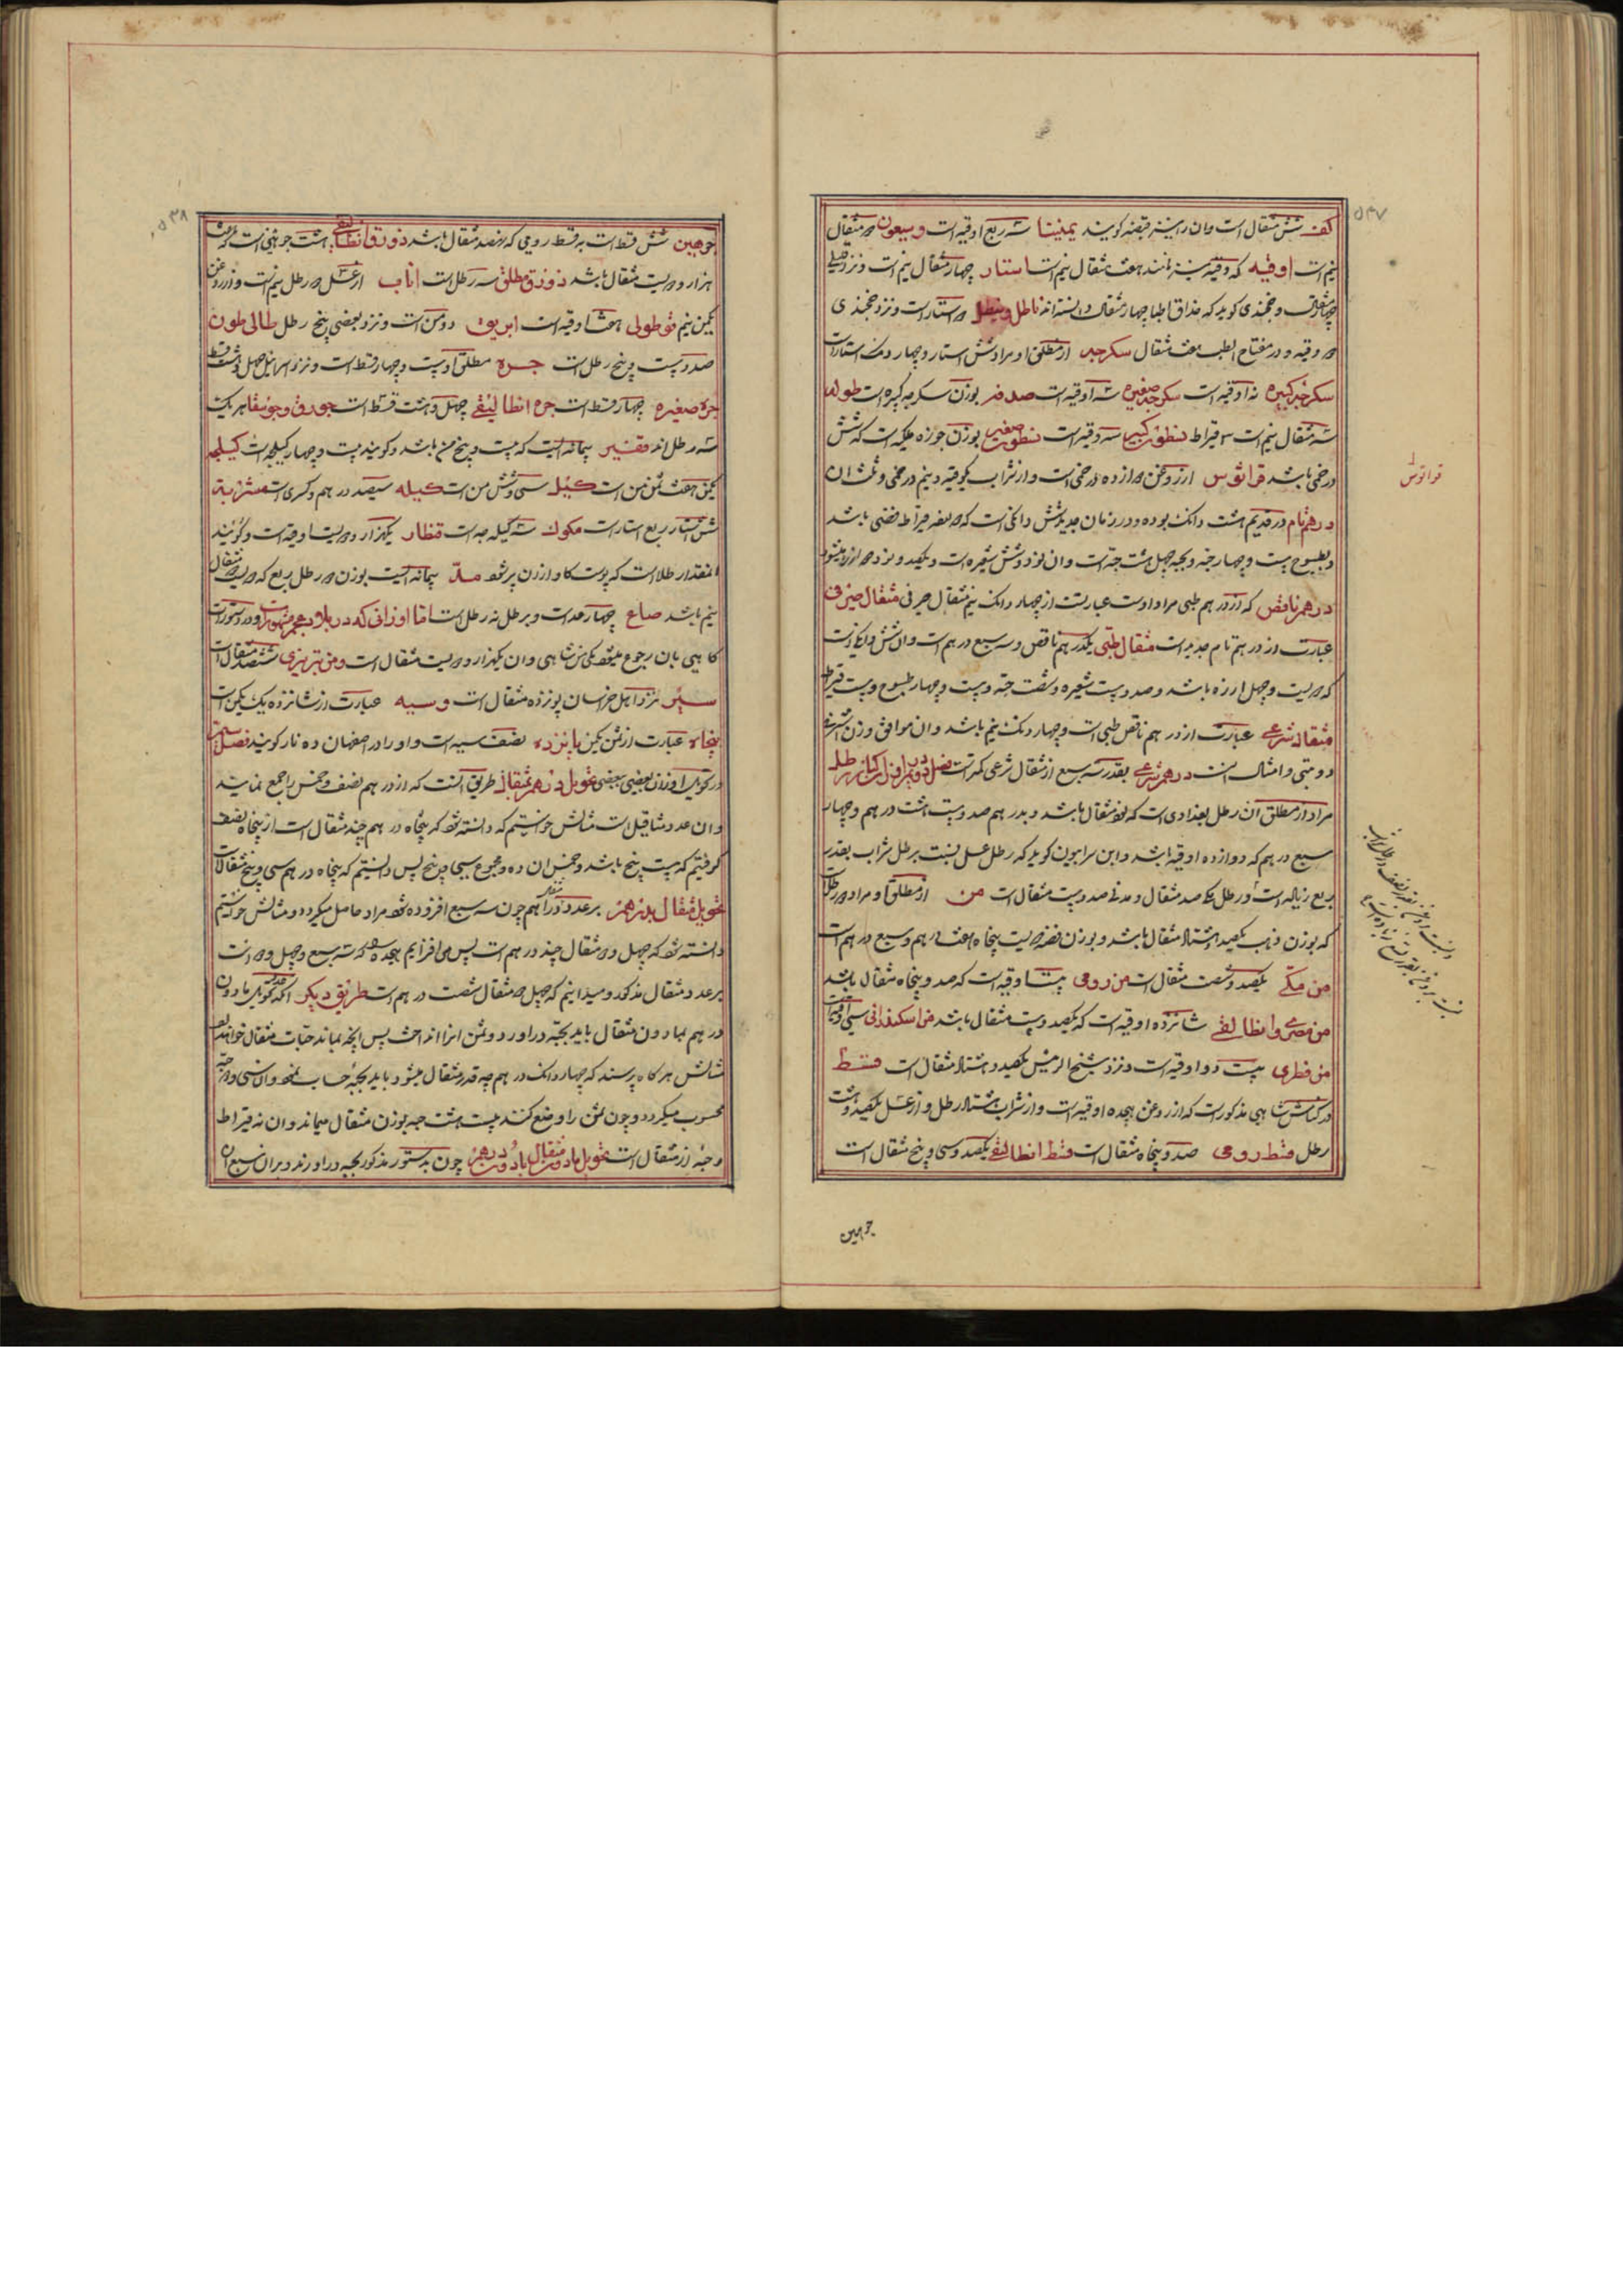 ۵۳۷
کف شش مثقال است وان را نیز قبضه کویند یمنیتا سه ربع اوقیه است وسیعون دو مثقال
نیم است اوقیه که وقیه نیز نامند هفت مثقال نیم است استار چهار مثقال نیم است ونزد
وخجندی کوید که حذاق اطبا چهار مثقال دانسته اند ناطل ونیطل دو استار است ونزد خجندی
دو وقیه و در مفتاح الطب هفت مثقال سکرجه از مطلق او مراد شش استار وچهار دانک استار است
سکرجه کبیره نه اوقیه است سکرجه صغیره سه اوقیه است صدفه بوزن سکرجه کبیره است طولون
سه مثقال نیم است قیراط نطون کبیر سه وقیه است نطون صغیر بوزن جوزه ملکیه است که شش
درخمی باشد قراثوس از روغن دوازده درخمی است واز شراب یکوقیه ونیم درخمی وثلث ان
درهم تام در قدیم هشت دانک بوده ودر زمان جدید شش دانک است که دوازده قیراط فضی باشد
وبطسوج بیست وچهار وبحبه چهل هشت حبه است وان نود وشش شعیره است ویکصد ونود دو ارزه میشود
درهم ناقص که از درهم طبی مراد اوست عبارتست از چهار دانک نیم مثقال صیرفی مثقال صیرفی
عبارت از درهم تام جدید است مثقال طبی یکدرهم ناقص وسه سبع درهم است وان شش دانک است
که دویست وچهل ارزه باشد وصد وبیست شعیره وشصت حبه وبیست وچهار طسوج وبیست قیراط
مثقال شرعی عبارت از درهم ناقص طبی است وچهار دانک نیم باشد وان موافق وزن اشرفی
دوبتی وامثال است درهم شرعی بقدر سه سبع از مثقال شرعی کمتر است فصل در اوزان کبار رطل
مراد از مطلق ان رطل بغدادی است که نود مثقال باشد وبدرهم صد وبیست هشت درهم وچهار
سبع درهم که دوازده اوقیه باشد وابن سرابیون کوید که رطل عسل بنسبت برطل شراب بقدر
ربع زیاده است ورطل مکه صد مثقال ومدنی صد وبیست مثقال است من از مطلق او مراد دو رطل است
که بوزن ذهب یکصد وهشتاد مثقال باشد وبوزن فضه دویست پنجاه هفت درهم وسبع درهم است
من مکی یکصد وشصت مثقال است من رومی بیست اوقیه است که صد وپنجاه مثقال باشد
من مصری وانطالیقی شانزده اوقیه است که یکصد وبیست مثقال باشد من اسکندرانی سی اوقیه است
من قطری بیست دو اوقیه است ونزد شیخ الرئیس یکصد وهشتاد مثقال است قسط
در کناش شاهی مذکور است که از روغن هیجده اوقیه است واز شراب هشتاد رطل واز عسل یکصد وهشت
رطل قسط رومی صد وپنجاه مثقال است قسط انطالیقی یکصد وسی وپنج مثقال است
جوهین
قواتوس
۵۳۸
جوهین شش قسط است به قسط رومی که نهصد مثقال باشد ذورق انطالیقی هشت جوهین است که
هزار و دویست مثقال باشد ذورق مطلق سه رطل است اناب از عسل دو رطل نیم است واز روغن
یکمن نیم قوطولی هفت اوقیه است ابریق دو من است ونزد بعضی پنج رطل طالی طون
صد وبیست وپنج رطل است جره مطلق او بیست وچهار قسط است ونزد اسرائیل چهل وهشت قسط
جره صغیره چهار قسط است جره انطالیقی چهل وهشت قسط است جورق وجونقا هریک
سه رطل اند قفیر پیمانه ایست که بیست وپنج من باشد وکویند بیست وچهار کیلجه است کیلجه
یکمن وهفت ثمن من است کیل سی وشش من است کیله سیصد درهم وکسری است مشربه
شش استار ربع استار است مکوک سه کیلجه است قنطار یکهزار دویست اوقیه است وکویند
انمقدار طلا است که پوست کاو از ان پر شود مد پیمانه ایست بوزن دو رطل ربع که دویست دو مثقال
نیم باشد صاع چهار مد است وبرطل نه رطل است اما اوزانی که در بلاد عجم مشهور است ودر دستورات
کاهی بان رجوع میشود یکی من شاهی وان یکهزار ودویست مثقال است ومن تبریزی ششصد مثقال است
سیر نزد اهل خراسان پانزده مثقال است وسیه عبارت از شانزده یک یکمن است
پنجاه عبارت از ثمن یکمن پانزده نصف سیه است واو را در اصفهان ده نار کویند فصل
در تحویل اوزان بعضی ببعضی تحویل درهم بمثقال طریق انست که از درهم نصف وخمس را جمع نمایند
وان عدد مثاقیل است مثالش خواستیم که دانسته شود که پنجاه درهم چند مثقال است از پنجاه نصف
کرفتیم که بیست پنج باشد وخمس ان ده ومجموع سی وپنج پس دانستیم که پنجاه درهم سی وپنج مثقال است
تحویل مثقال بدرهم بر عدد دراهم چون سه سبع افزوده شود مراد حاصل میکردد ومثالش خواستیم
دانسته شود که چهل ودو مثقال چند درهم است پس می افزایم هجده که سه سبع چهل ودو است
بر عدد مثقال مذکور ومیدانیم که چهل دو مثقال شصت درهم است طریق دیکر انکه تحویل مادون
درهم بمادون مثقال باید بحبه دراورد وثمن انرا انداخت پس انچه بماند حبات مثقال خواهد بود
مثالش هرکاه پرسند که چهار دانک درهم چه قدر مثقال میشود باید بحبه حساب نمود وان سی ودو حبه
محسوب میکردد وچون ثمن را وضع کنند بیست هشت حبه بوزن مثقال میماند وان نه قیراط
وحبه از مثقال است تحویل مادون مثقال بمادون درهم چون بدستور مذکور بحبه دراورند وبران سبع ان